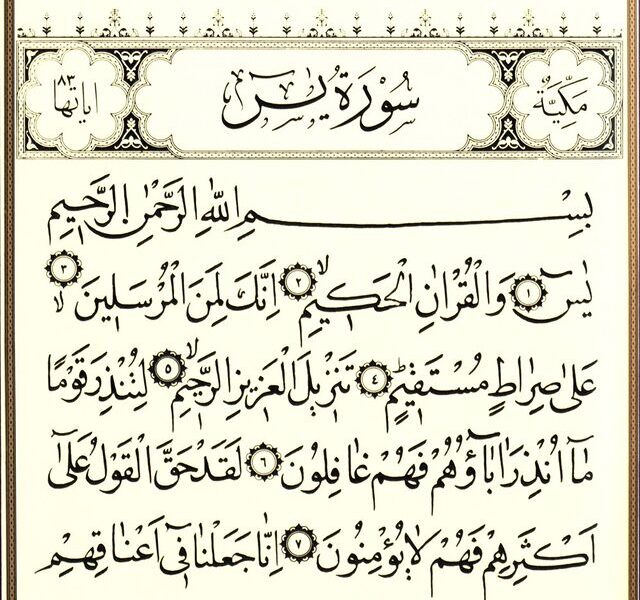 مَكِّيَّةٌ
سُورَةُ يٰسٓ
اٰيَاتُهَا ٨٣
بِسْمِ اللّٰهِ الرَّحْمٰنِ الرَّح۪يمِ
يٰسٓ ﴿١﴾ وَالْقُرْاٰنِ الْحَك۪يمِۙ ﴿٢﴾ اِنَّكَ لَمِنَ الْمُرْسَل۪ينَۙ ﴿٣﴾
عَلٰى صِرَاطٍ مُسْتَق۪يمٍۜ ﴿٤﴾ تَنْز۪يلَ الْعَز۪يزِ الرَّح۪يمِۙ ﴿٥﴾ لِتُنْذِرَ قَوْمًا
مَٓا اُنْذِرَ اٰبَٓاؤُ۬هُمْ فَهُمْ غَافِلُونَ ﴿٦﴾ لَقَدْ حَقَّ الْقَوْلُ عَلٰٓى
اَكْثَرِهِمْ فَهُمْ لَا يُؤْمِنُونَ ﴿٧﴾ اِنَّا جَعَلْنَا ف۪ٓي اَعْنَاقِهِمْ